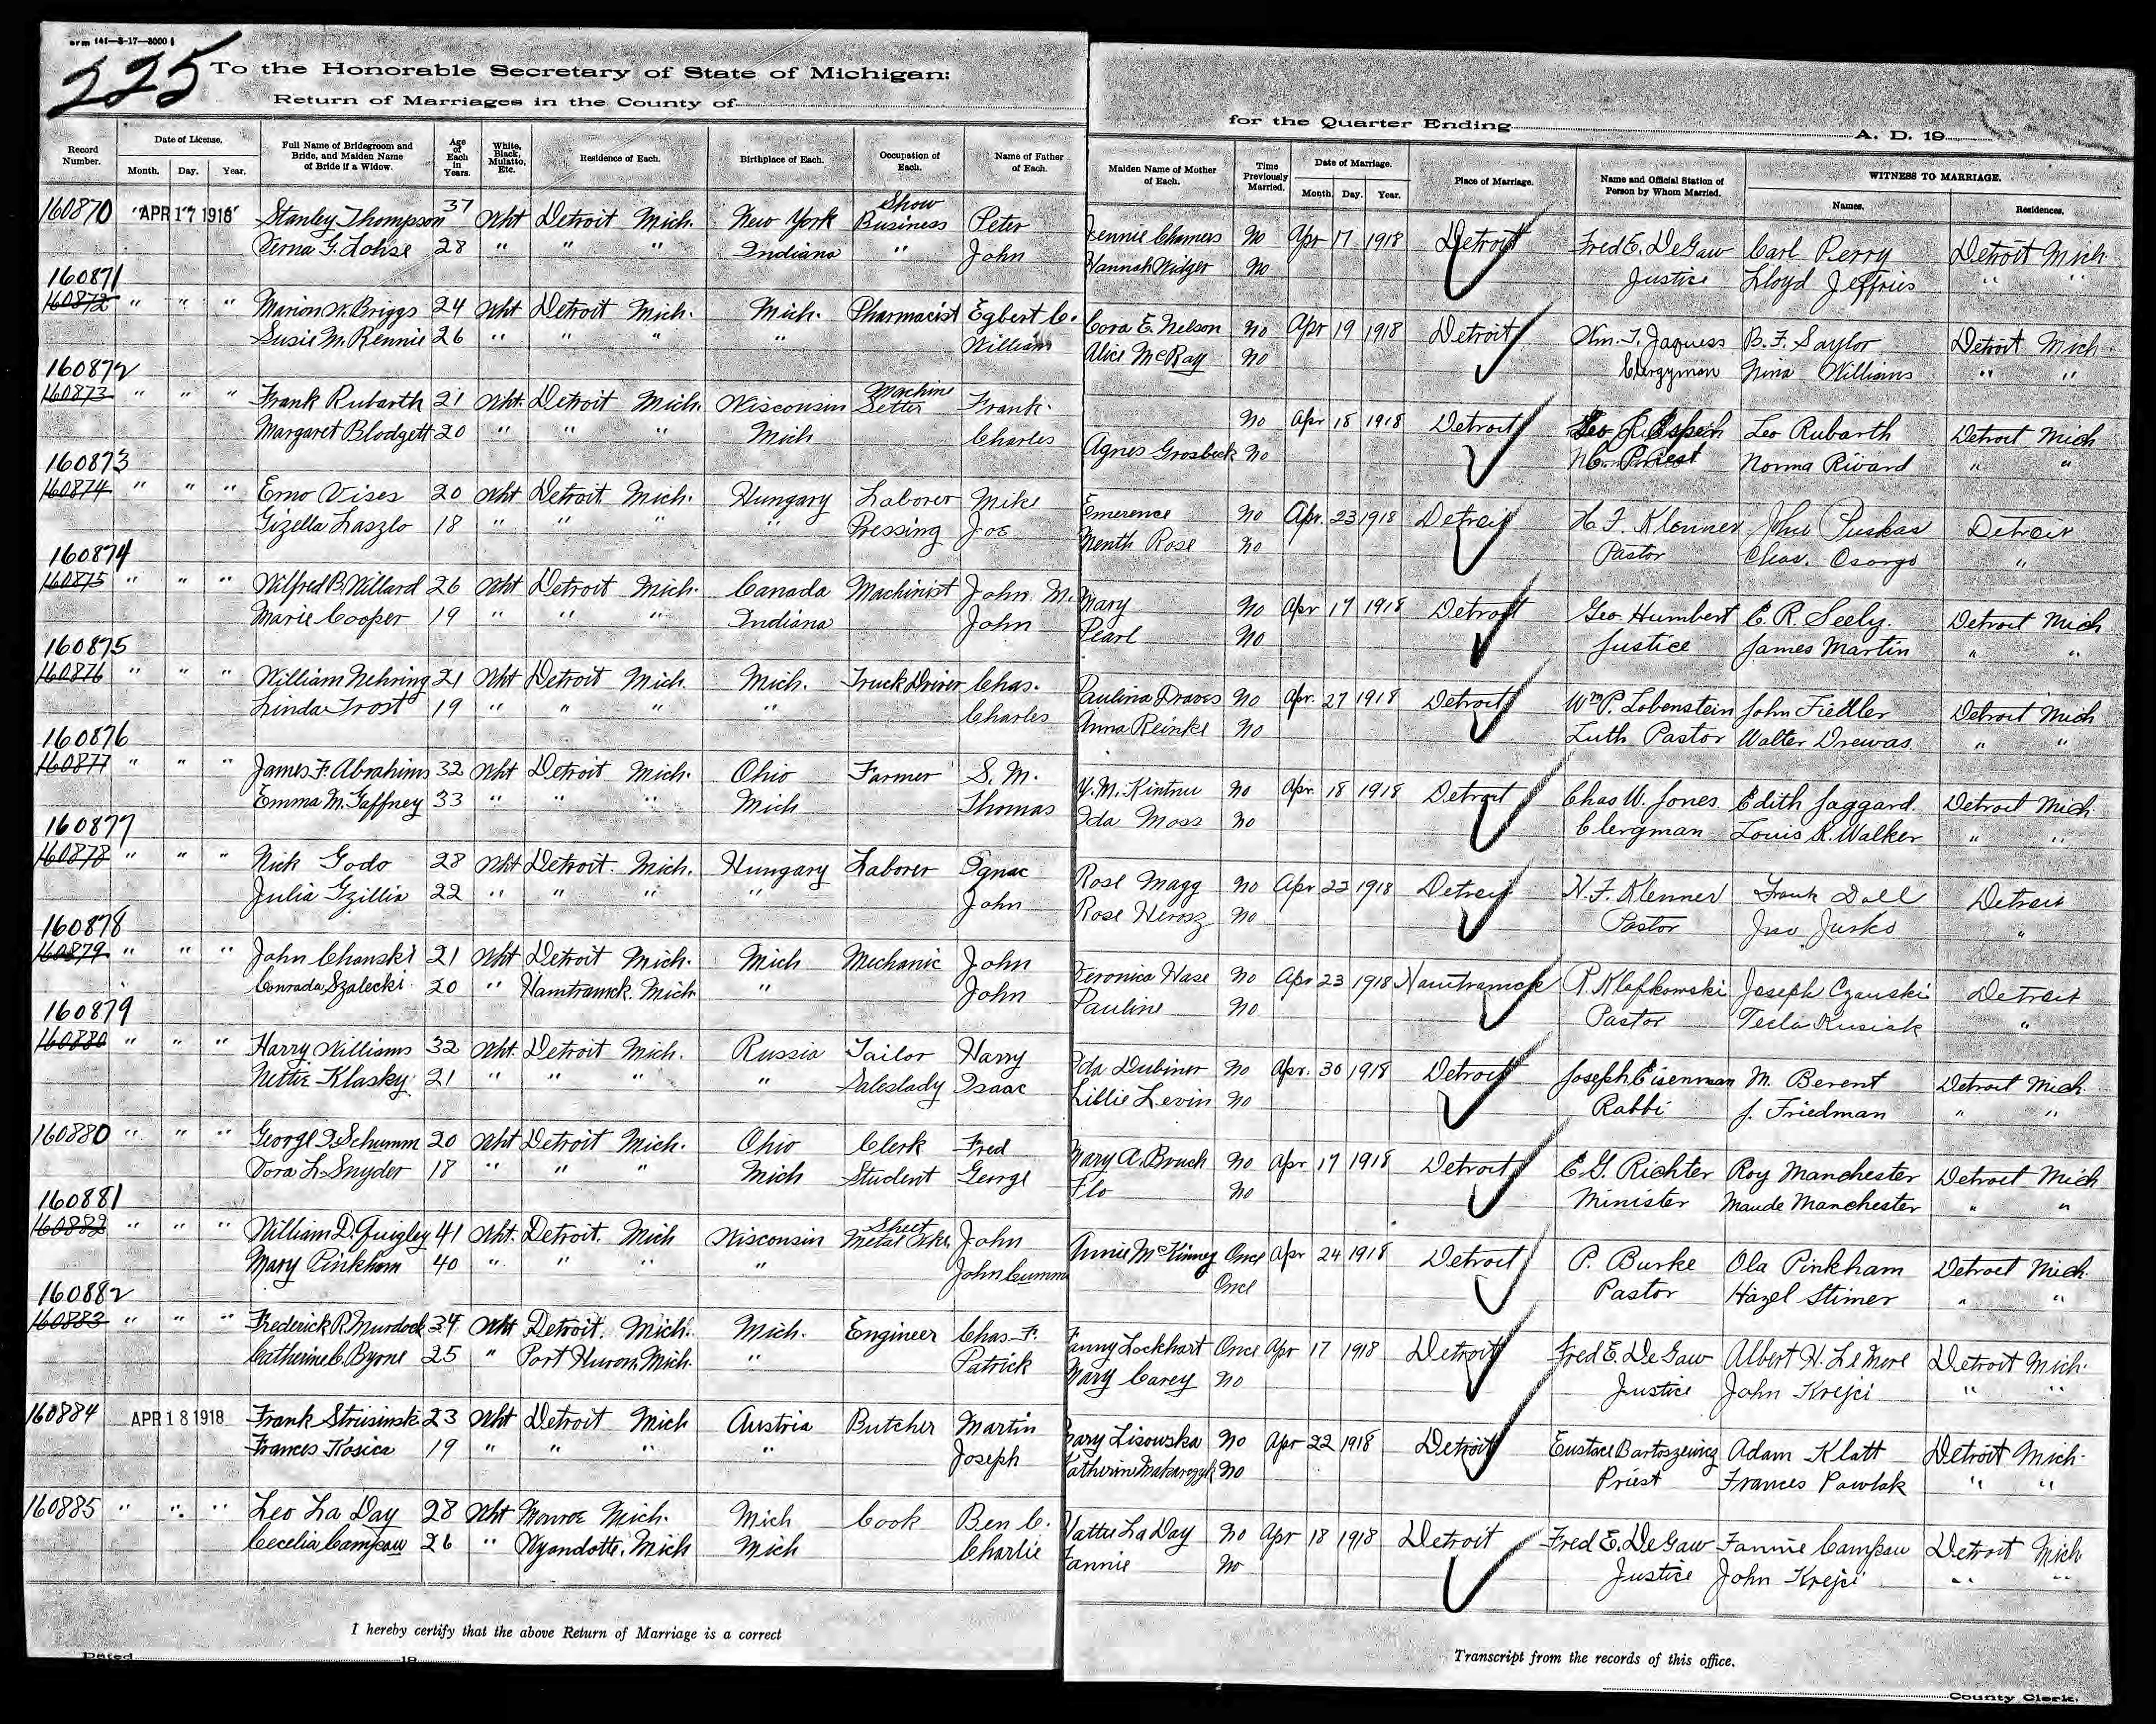 orm 141—8-17—3000
225
To the Honorable Secretary of State of Michigan:
Return of Marriages in the County of
for the Quarter Ending A. D. 19
Record Number. Date of License. Month. Day. Year. Full Name of Bridegroom and Bride, and Maiden Name of Bride if a Widow. Age of Each in Years. White, Black, Mulatto, Etc. Residence of Each. Birthplace of Each. Occupation of Each. Name of Father of Each. Maiden Name of Mother of Each. Time Previously Married. Date of Marriage. Month. Day. Year. Place of Marriage. Name and Official Station of Person by Whom Married. WITNESS TO MARRIAGE. Names. Residences.
160870 APR 17 1918 Stanley Thompson 37 Wht Detroit Mich. New York Show Business Peter Jennie Chamers No Apr 17 1918 Detroit Fred E. DeGaw Carl Perry Detroit Mich.
Verna G. Lohse 28 " " " Indiana " John Hannah Widger No Justice Lloyd Jeffries " "
160871
160872 " " " Marion W. Briggs 24 Wht Detroit Mich. Mich. Pharmacist Egbert C. Cora E. Nelson No Apr 19 1918 Detroit Wm. T. Jaquess B. F. Saylor Detroit Mich.
Susie M. Rennie 26 " " " " William Alice McRay No Clergyman Nina Williams " "
160872
160873 " " " Frank Rubarth 21 Wht. Detroit Mich. Wisconsin Machine Setter Frank No Apr 18 1918 Detroit Leo Rubarth Detroit Mich
Margaret Blodgett 20 " " " Mich Charles Agnes Grosbeck No Priest Norma Rivard " "
160873
160874 " " " Erno Vises 20 Wht Detroit Mich. Hungary Laborer Mike Emerence No Apr. 23 1918 Detroit H. F. Klenner John Puskas Detroit
Gizella Laszlo 18 " " " " Pressing Joe Menth Rose No Pastor Chas. Csorgo "
160874
160875 " " " Wilfred B. Willard 26 Wht Detroit Mich. Canada Machinist John M. Mary No Apr 17 1918 Detroit Geo. Humbert E. R. Seely. Detroit Mich
Marie Cooper 19 " " " Indiana John Pearl No Justice James Martin " "
160875
160876 " " " William Nehring 21 Wht Detroit Mich. Mich. Truck Driver Chas. Paulina Draves No Apr. 27 1918 Detroit Wm P. Lobenstein John Fiedler Detroit Mich
Linda Trost 19 " " " " Charles Anna Reinke No Luth Pastor Walter Drewas " "
160876
160877 " " " James F. Abrahims 32 Wht Detroit Mich. Ohio Farmer S. M. Y. M. Kintnu No Apr. 18 1918 Detroit Chas W. Jones. Edith Jaggard. Detroit Mich.
Emma M. Gaffney 33 " " " Mich Thomas Ida Moss No Clergman Louis R. Walker " "
160877
160878 " " " Nick Godo 28 Wht Detroit. Mich. Hungary Laborer Ignac Rose Magg No Apr 22 1918 Detroit H. F. Klenner Frank Doll Detroit
Julia Gzillia 22 " " " " John Rose Herosz No Pastor Jno Jurko "
160878
160879 " " " John Chanski 21 Wht Detroit Mich. Mich Mechanic John Veronica Hase No Apr 23 1918 Hamtramck P. Klafkowski Joseph Czanski Detroit
Conrada Szalecki 20 " Hamtramck. Mich " John Pauline No Pastor Tesla Kusiak "
160879
160880 " " " Harry Williams 32 Wht. Detroit Mich. Russia Tailor Harry Ida Dubiner No Apr. 30 1918 Detroit Joseph Eisenman M. Berent Detroit Mich.
Nettie Klasky 21 " " " " Saleslady Isaac Lillie Levin No Rabbi J. Friedman " "
160880 " " " George D. Schumm 20 Wht Detroit Mich. Ohio Clerk Fred Mary A. Bruch No Apr 17 1918 Detroit E G. Richter Roy Manchester Detroit Mich
Dora L. Snyder 18 " " " Mich Student George Flo No Minister Maude Manchester " "
160881
160882 " " " William D. Quigley 41 Wht. Detroit. Mich Wisconsin Sheet Metal Wkr. John Annie McKinney Once Apr 24 1918 Detroit P. Burke Ola Pinkham Detroit Mich.
Mary Pinkham 40 " " " " John Cumm Once Pastor Hazel Stimer " "
160882
160883 " " " Frederick R. Murdock 34 Wht Detroit. Mich. Mich. Engineer Chas. F. Fanny Lockhart Once Apr 17 1918 Detroit Fred E. DeGaw Albert H. LeMere Detroit Mich.
Catherine C. Byrne 25 " Port Huron Mich. " Patrick Mary Carey No Justice John Krejci " "
160884 APR 18 1918 Frank Strusinski 23 Wht Detroit Mich Austria Butcher Martin Lisowska No Apr 22 1918 Detroit Eustace Bartoszewicz Adam Klatt Detroit Mich.
Frances Kosica 19 " " " " Joseph Katherine Makarczyk No Priest Frances Pawlak " "
160885 " " " Leo La Day 28 Wht Monroe Mich. Mich Cook Ben C. Hattie LaDay No Apr 18 1918 Detroit Fred E. DeGaw Fannie Campau Detroit Mich.
Cecelia Campau 26 " Wyandotte. Mich Mich Charlie Fannie No Justice John Krejci " "
I hereby certify that the above Return of Marriage is a correct
Transcript from the records of this office.
Dated 19
County Clerk.